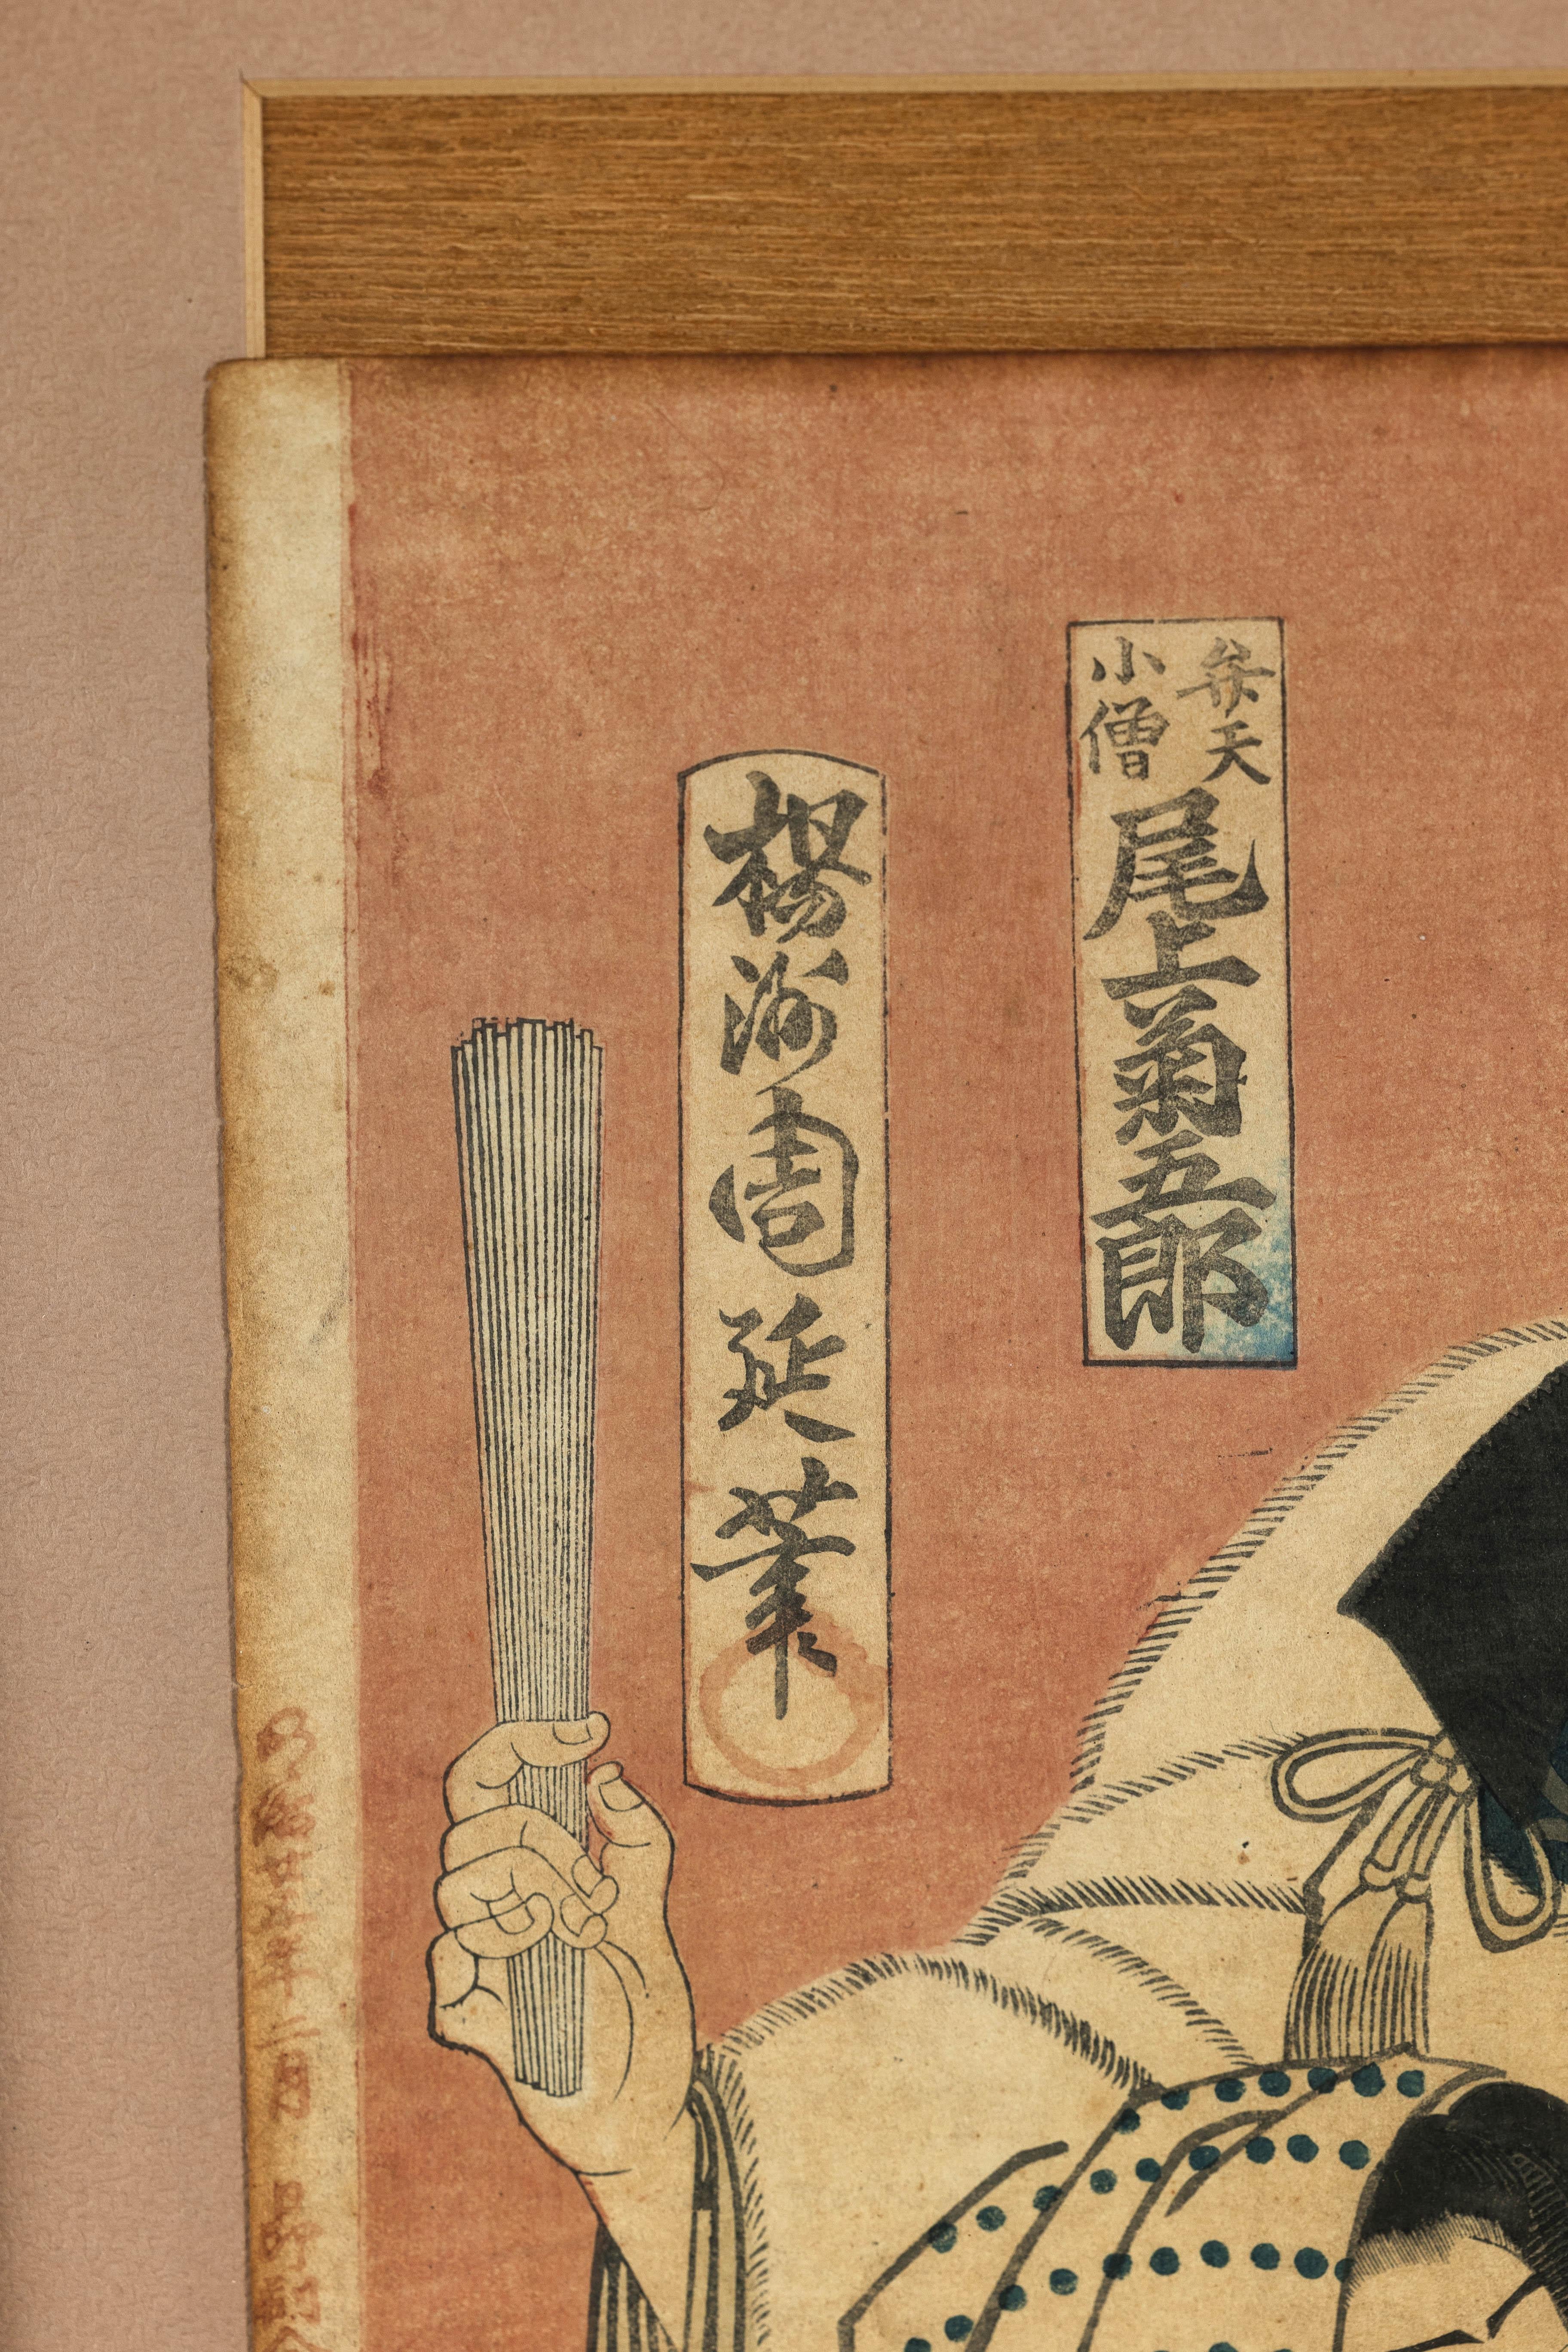 弁天
小僧
尾上菊五郎
楊洲周延筆